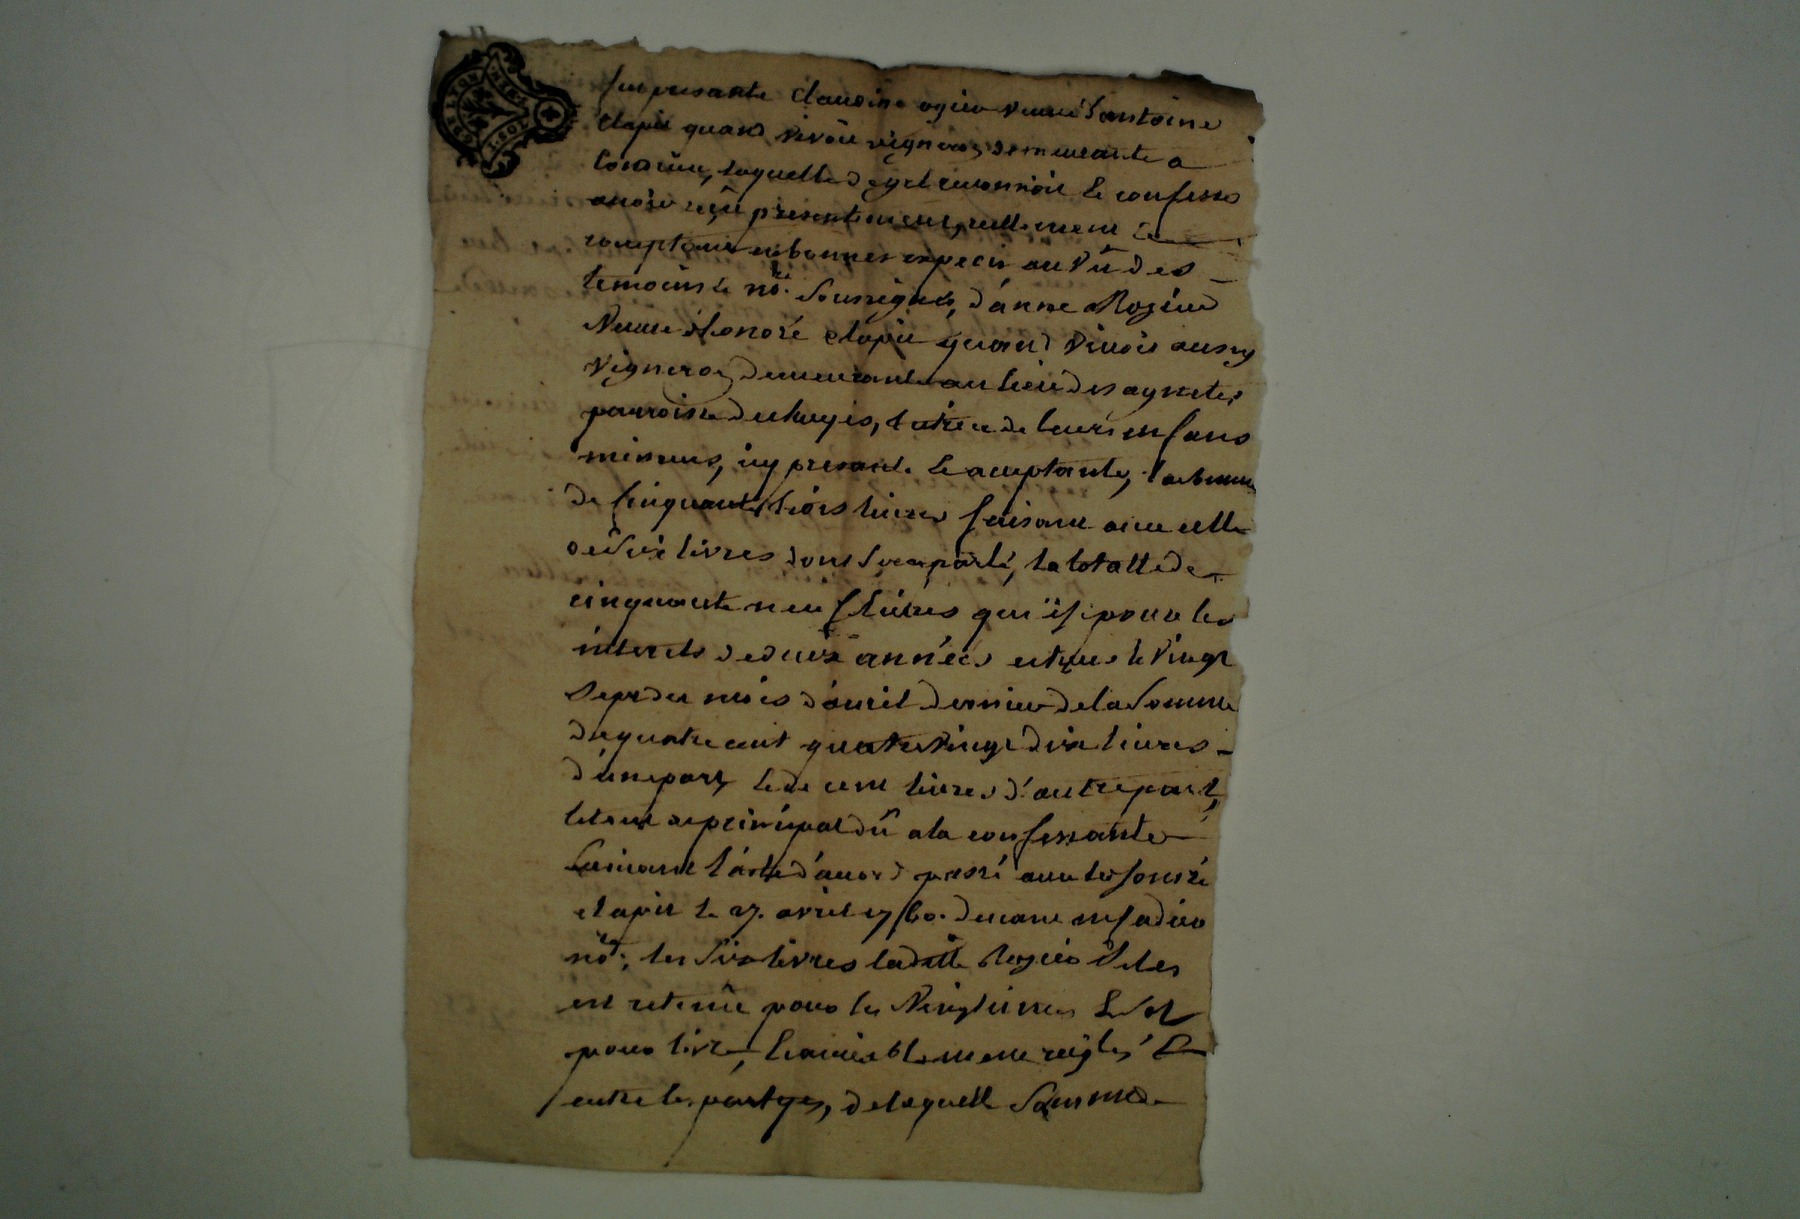 GEN DE LYON
I. SOL
fut presente Claudine ogier veuve d'antoine
Clapit quand vivoit vigneron demeurante a
laquelle de gré reconnoit et confesse
avoir reçû presentement, reellement et
comptant en bonnes especes au vû des
temoins et nore. soussignés, d'anne Rogier
Veuve d'honoré clapit quand vivoit aussy
vigneron demeurante au lieu des aynetes
parroisse de , tutrice de leurs enfans
mineurs, icy presente et acceptante, la somme
de cinquante trois livres faisant avec celle
de six livres dont sera parlé, la totalle de
cinquante neuf livres qui est pour les
interets de deux années echues le vingt
sept du mois d'avril dernier de la somme
de quatre cent quatre vingt dix livres
d'une part, et de cent livres d'autre part,
le tout de principal dû a la confessante
suivant l'acte d'accord passé avec led honoré
clapit le 27. avril 1760. devant
nore; les six livres ladette Rogier les
ont retenüe pour les vingtiemes et sol
pour livre, et amiablement reiglés
entre les partyes, de laquelle somme